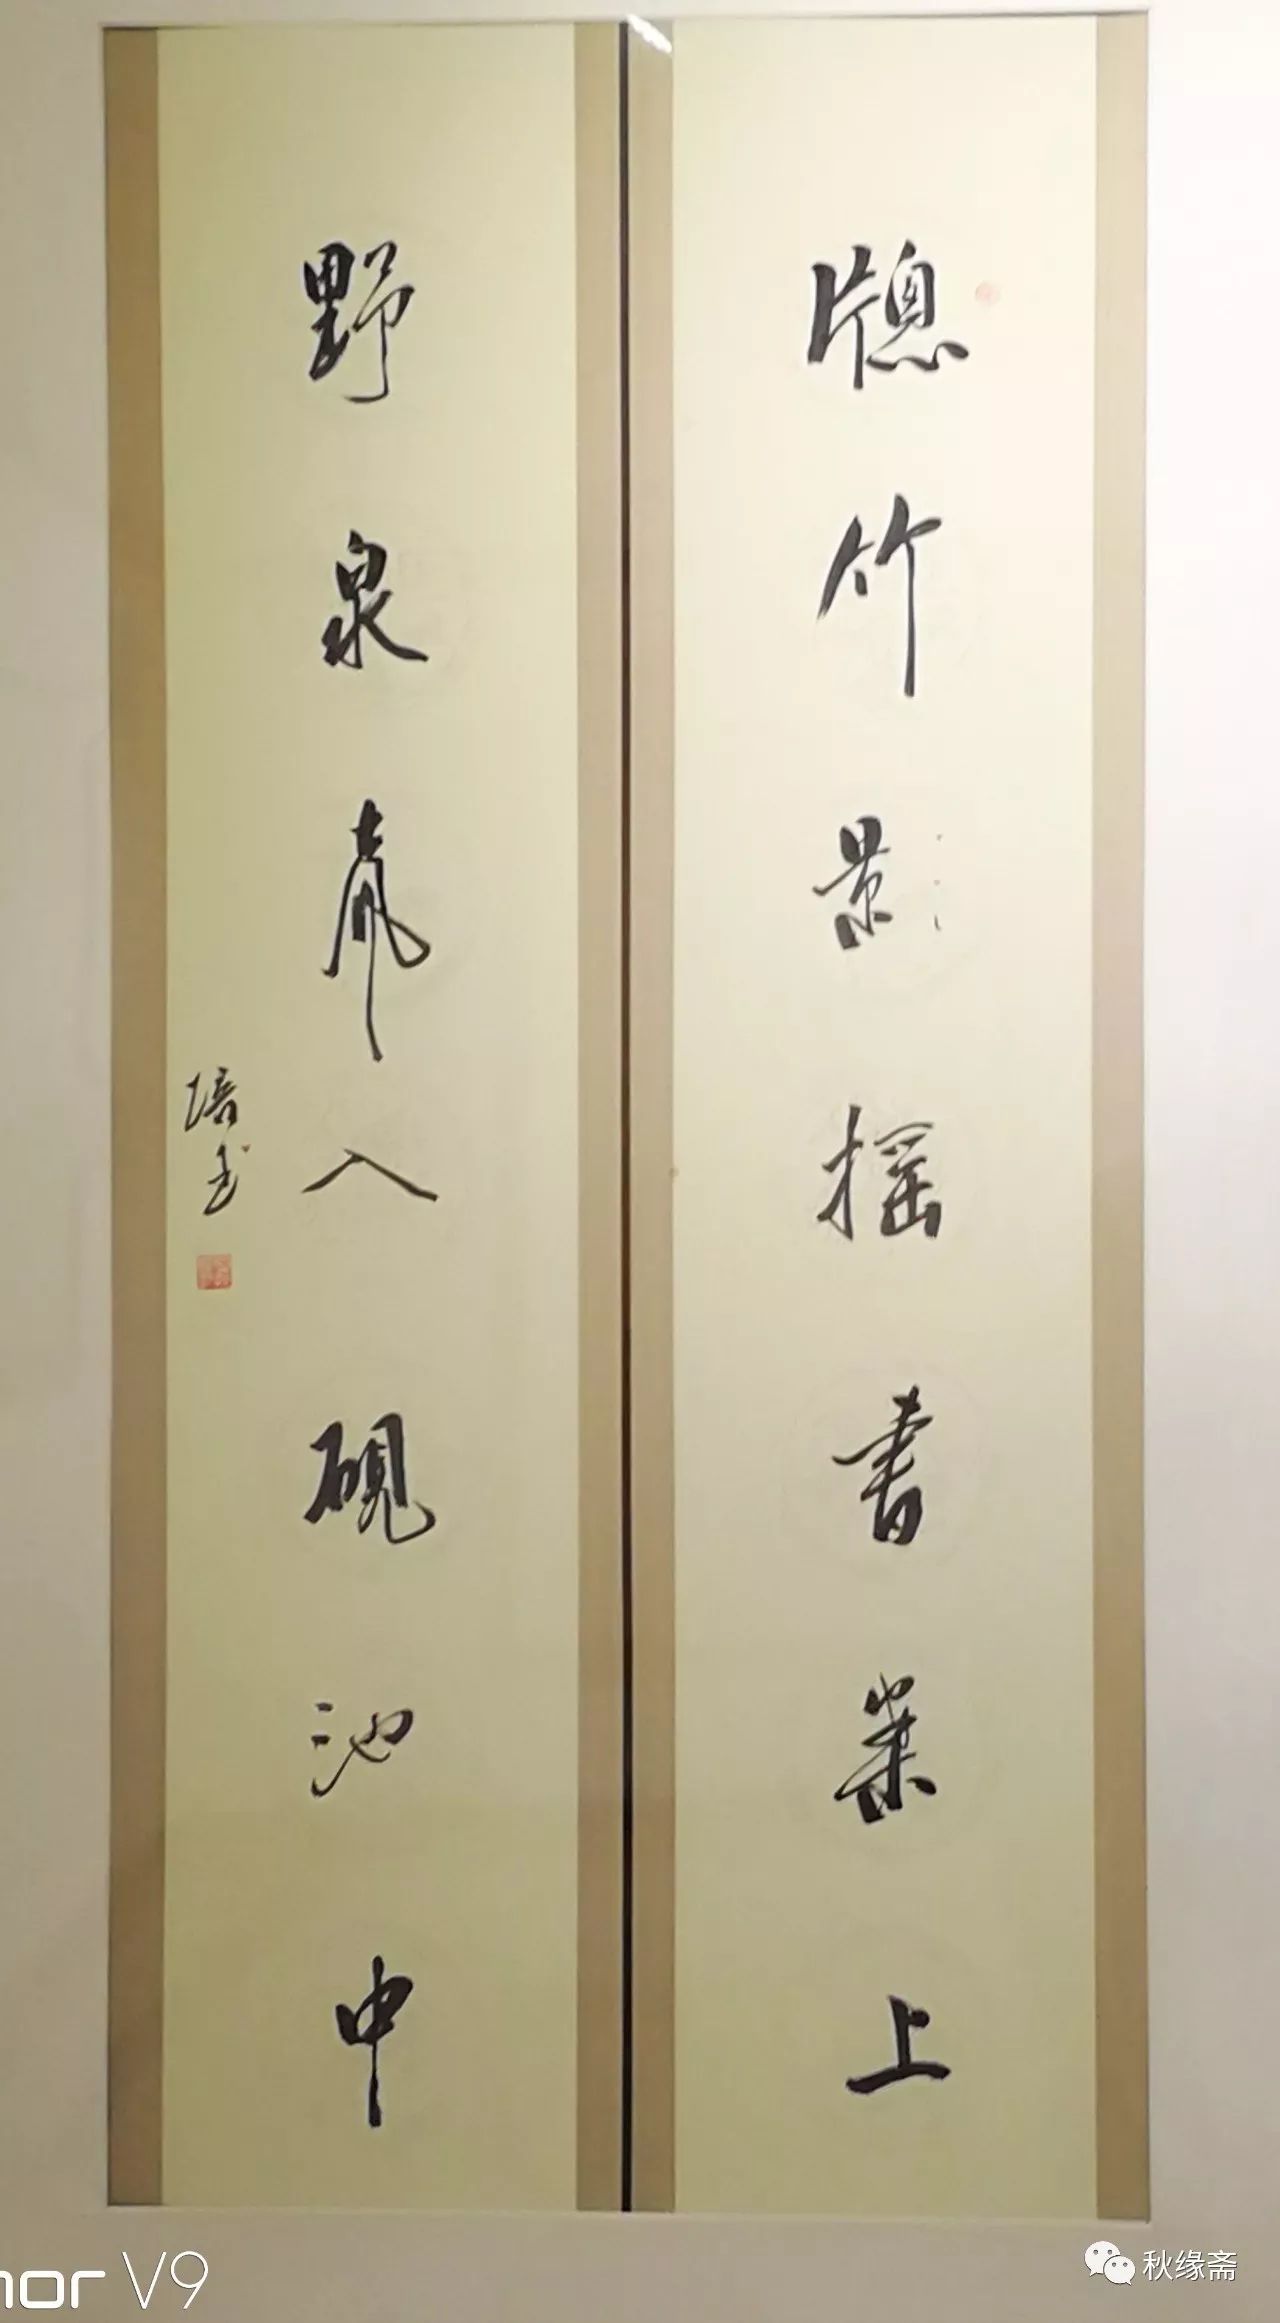 牕竹影摇書案上
野泉聲入硯池中
培书
nor V9
秋缘斋